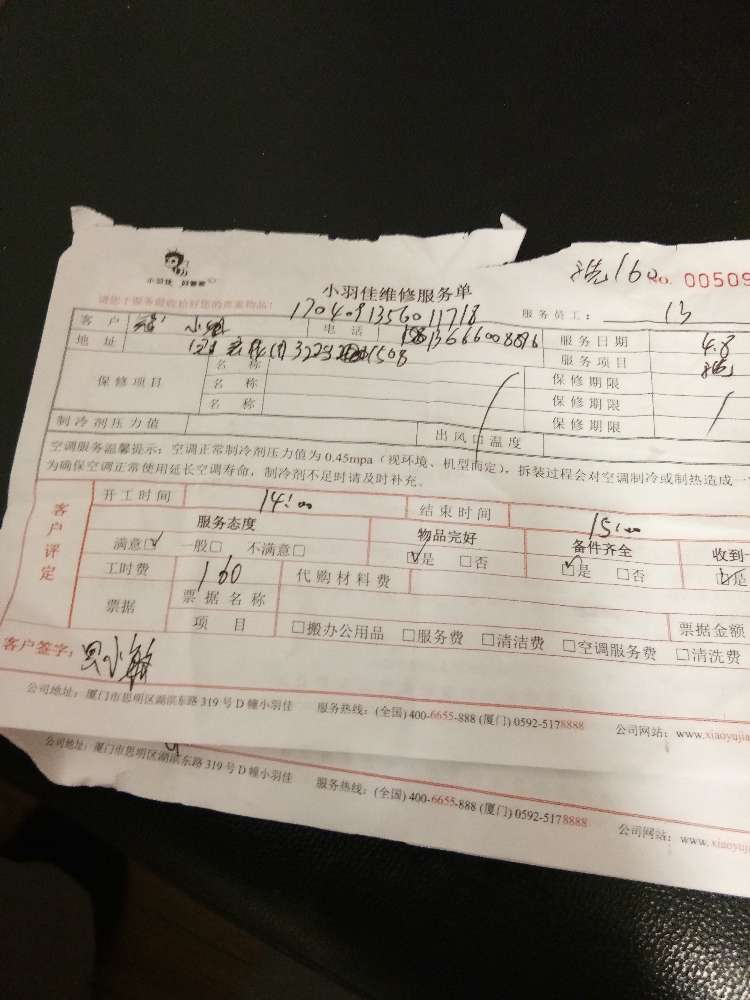 小羽佳 回管家
洗160
No. 00509
小羽佳维修服务单
请您于服务前收检好您的贵重物品!
17040813560 11718
服务员工:
客户 小姐 电话 13666008896 服务日期 4.8
地址 服务项目 洗
保修项目 名称 保修期限
名称 保修期限
名称 保修期限
制冷剂压力值 出风口温度
空调服务温馨提示:空调正常制冷剂压力值为 0.45mpa(视环境、机型而定),拆装过程会对空调制冷或制热造成一
为确保空调正常使用延长空调寿命,制冷剂不足时请及时补充。
客户评定
开工时间 14:00 结束时间 15:00
服务态度 物品完好 备件齐全 收到
满意☑ 一般□ 不满意□ ☑是 □否 ☑是 □否 ☑是
工时费 160 代购材料费
票据 票据名称 票据金额
项目 □搬办公用品 □服务费 □清洁费 □空调服务费 □清洗费
客户签字:
公司地址:厦门市思明区湖滨东路 319 号 D 幢小羽佳 服务热线:(全国) 400-6655-888 (厦门) 0592-5178888 公司网站:www.xiaoyujia
公司地址:厦门市思明区湖滨东路 319 号 D 幢小羽佳 服务热线:(全国) 400-6655-888 (厦门) 0592-5178888 公司网站:www.xiaoyuj